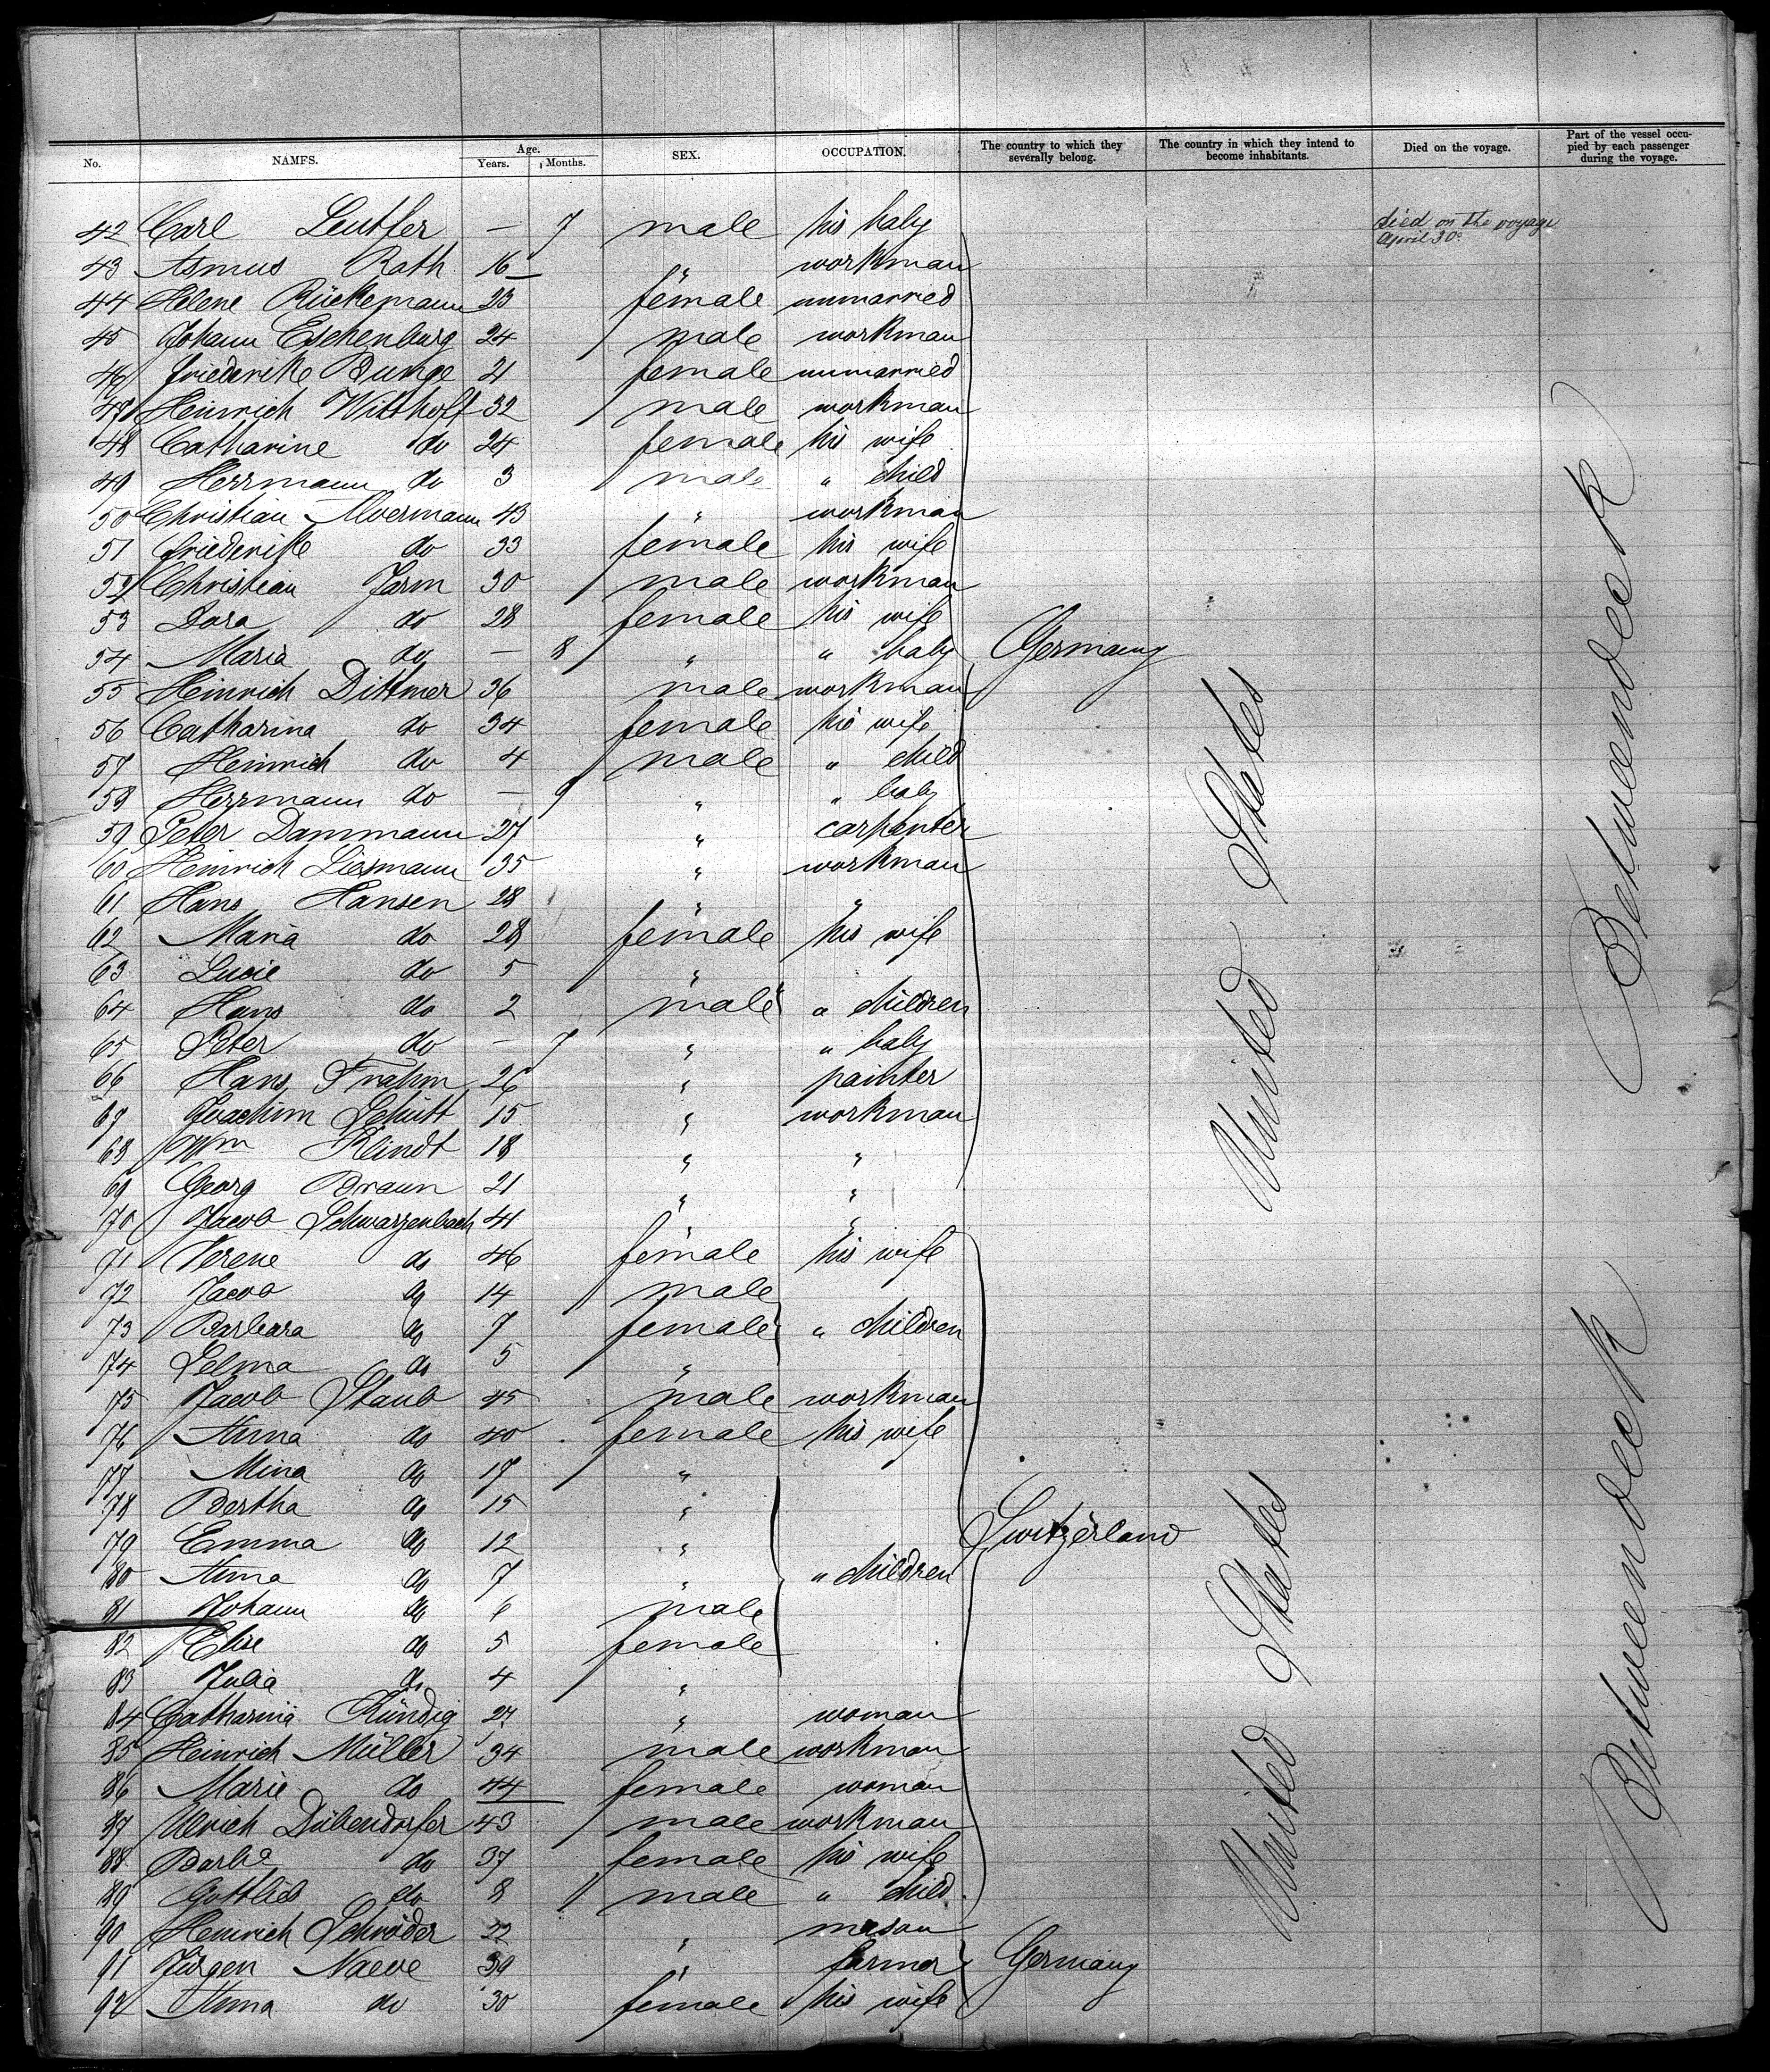 No. NAMES. Age. Years. Months. SEX. OCCUPATION. The country to which they severally belong. The country in which they intend to become inhabitants. Died on the voyage. Part of the vessel occupied by each passenger during the voyage.
42 Carl — 7 male his baby died on the voyage April 30
43 Asmus Rath 16 — " workman
44 Helene Rückemann 23 female unmarried
45 Johann Eschenburg 24 male workman
46 Friederike Bunge 21 female unmarried
47 Heinrich Witthoff 32 male workman
48 Catharine do 24 female his wife
49 Herrmann do 3 male " child
50 Christian Alvermann 43 " workman
51 Friederike do 33 female his wife
52 Christian Jarm 30 male workman
53 Dora do 28 female his wife
54 Maria do — 8 " " baby Germany
55 Heinrich Dittmer 36 male workman
56 Catharina do 34 female his wife
57 Heinrich do 4 male " child
58 Herrmann do — 9 " " baby
59 Peter Dammann 27 " carpenter
60 Heinrich Liesmann 35 " workman
61 Hans Hansen 28 " "
62 Maria do 28 female his wife
63 Lucie do 5 "
64 Hans do 2 male " children
65 Peter do — 7 " " baby
66 Hans Frahm 26 " painter
67 Joachim Schütt 15 " workman
68 Wm Klindt 18 " "
69 Georg Braun 21 " "
70 Jacob Schwarzenbach 41 " "
71 Verene do 46 female his wife
72 Jacob do 14 male
73 Barbara do 7 female " children
74 Selma do 5 "
75 Jacob Staub 45 male workman
76 Anna do 40 female his wife
77 Mina do 17 "
78 Bertha do 15 "
79 Emma do 12 " Switzerland
80 Anna do 7 " " children
81 Johann do 6 male
82 Elise do 5 female
83 Julia do 4 "
84 Catharina Kündig 24 " woman
85 Heinrich Müller 34 male workman
86 Marie do 44 female woman
87 Ulrich Dübendorfer 43 male workman
88 Barba do 37 female his wife
89 Gottlieb do 8 male " child
90 Heinrich Schröder 22 " mason
91 Jürgen Naeve 39 " farmer Germany
92 Anna do 30 female his wife
United States
United States
Betweendeck
Betweendeck